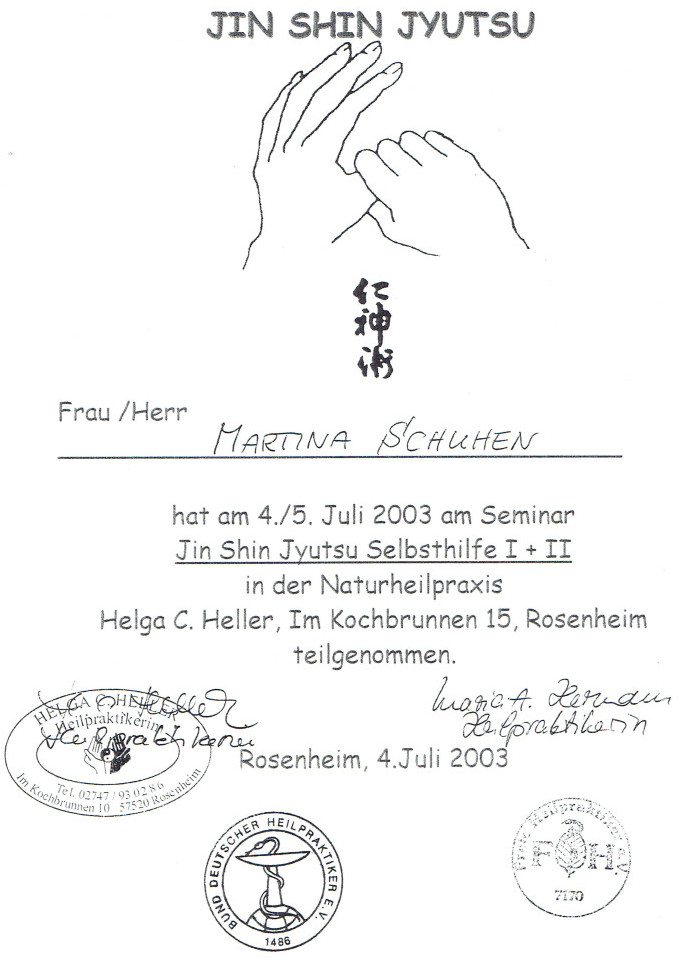 JIN SHIN JYUTSU
仁
神
術
Frau /Herr
MARTINA SCHUHEN
hat am 4./5. Juli 2003 am Seminar
Jin Shin Jyutsu Selbsthilfe I + II
in der Naturheilpraxis
Helga C. Heller, Im Kochbrunnen 15, Rosenheim
teilgenommen.
Heller
Heilpraktikerin
HELGA C. HELLER
Heilpraktikerin
Tel. 02747 / 93 02 86
Im Kochbrunnen 10 57520 Rosenheim
Maria A. Hermann
Heilpraktikerin
Rosenheim, 4.Juli 2003
BUND DEUTSCHER HEILPRAKTIKER E.V.
1486
Heilpraktiker
F H
7170